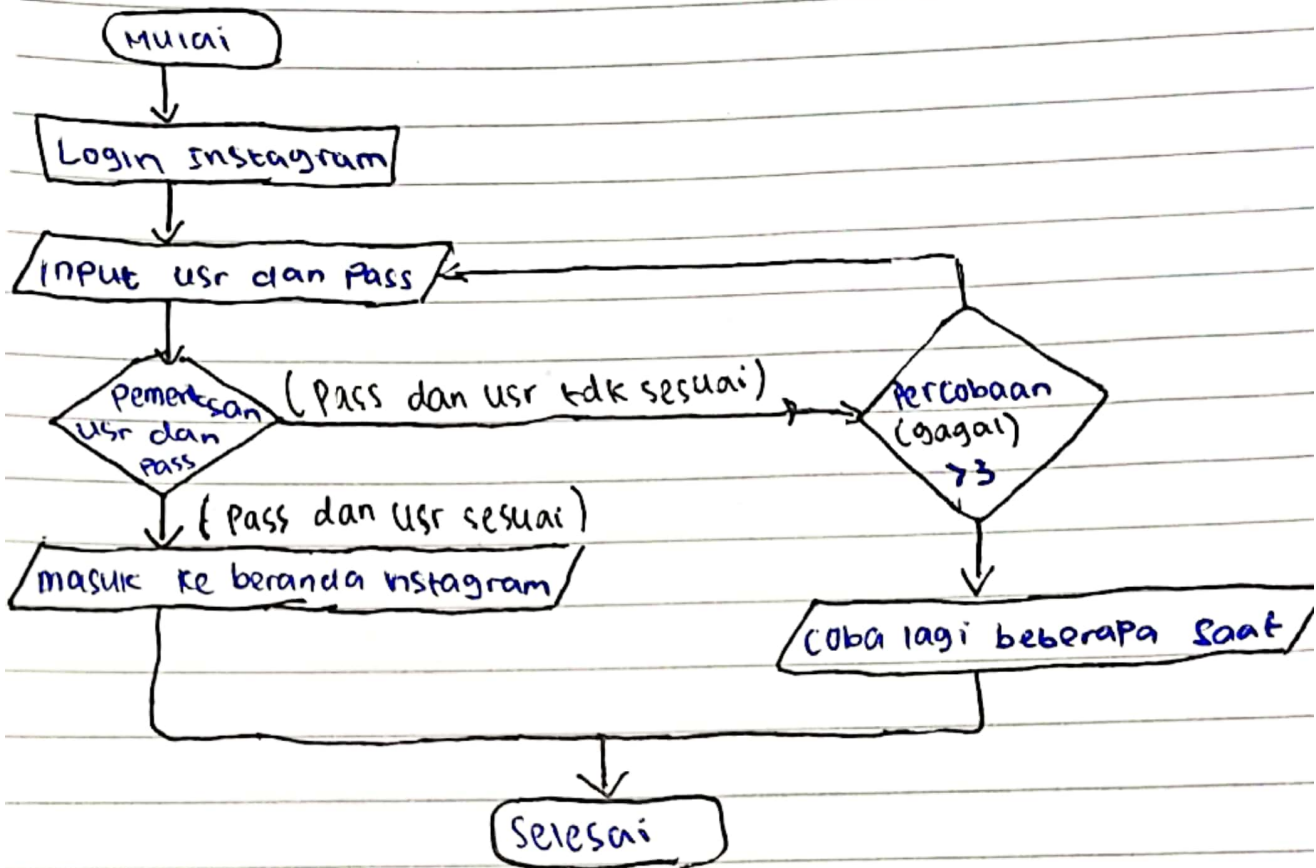 Mulai
Login Instagram
Input usr dan Pass
Pemeriksan
usr dan
Pass
(Pass dan usr tdk sesuai)
Percobaan
(gagal)
>3
(Pass dan usr sesuai)
masuk ke beranda instagram
Coba lagi beberapa saat
Selesai